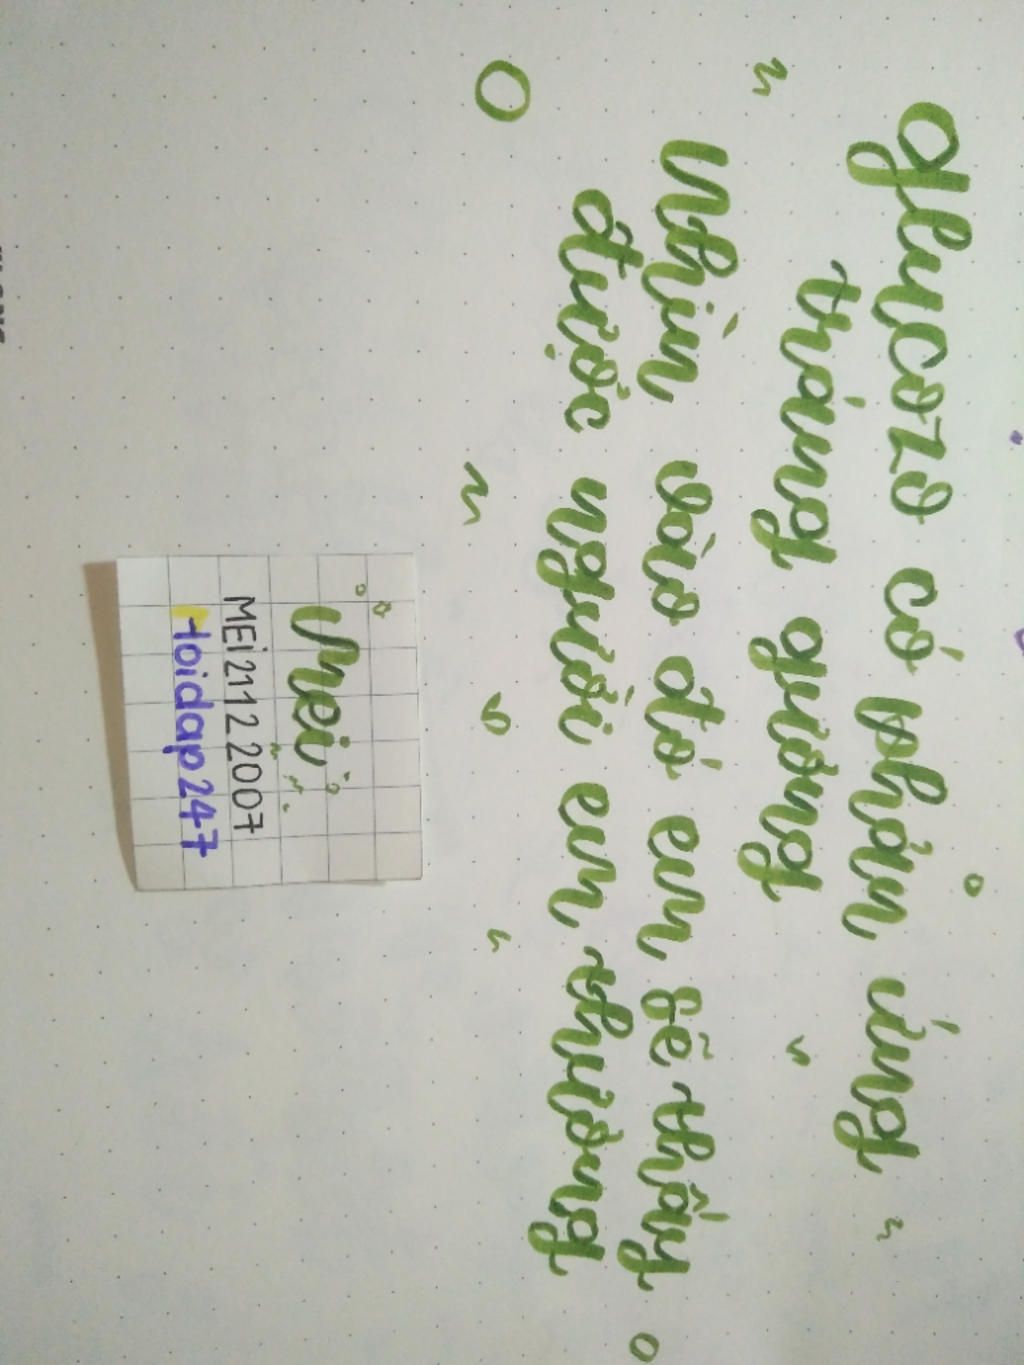 Glucozo có phản ứng
tráng gương
Nhìn vào đó em sẽ thấy
được người em thương
Mei
MEi21122007
Hoidap247